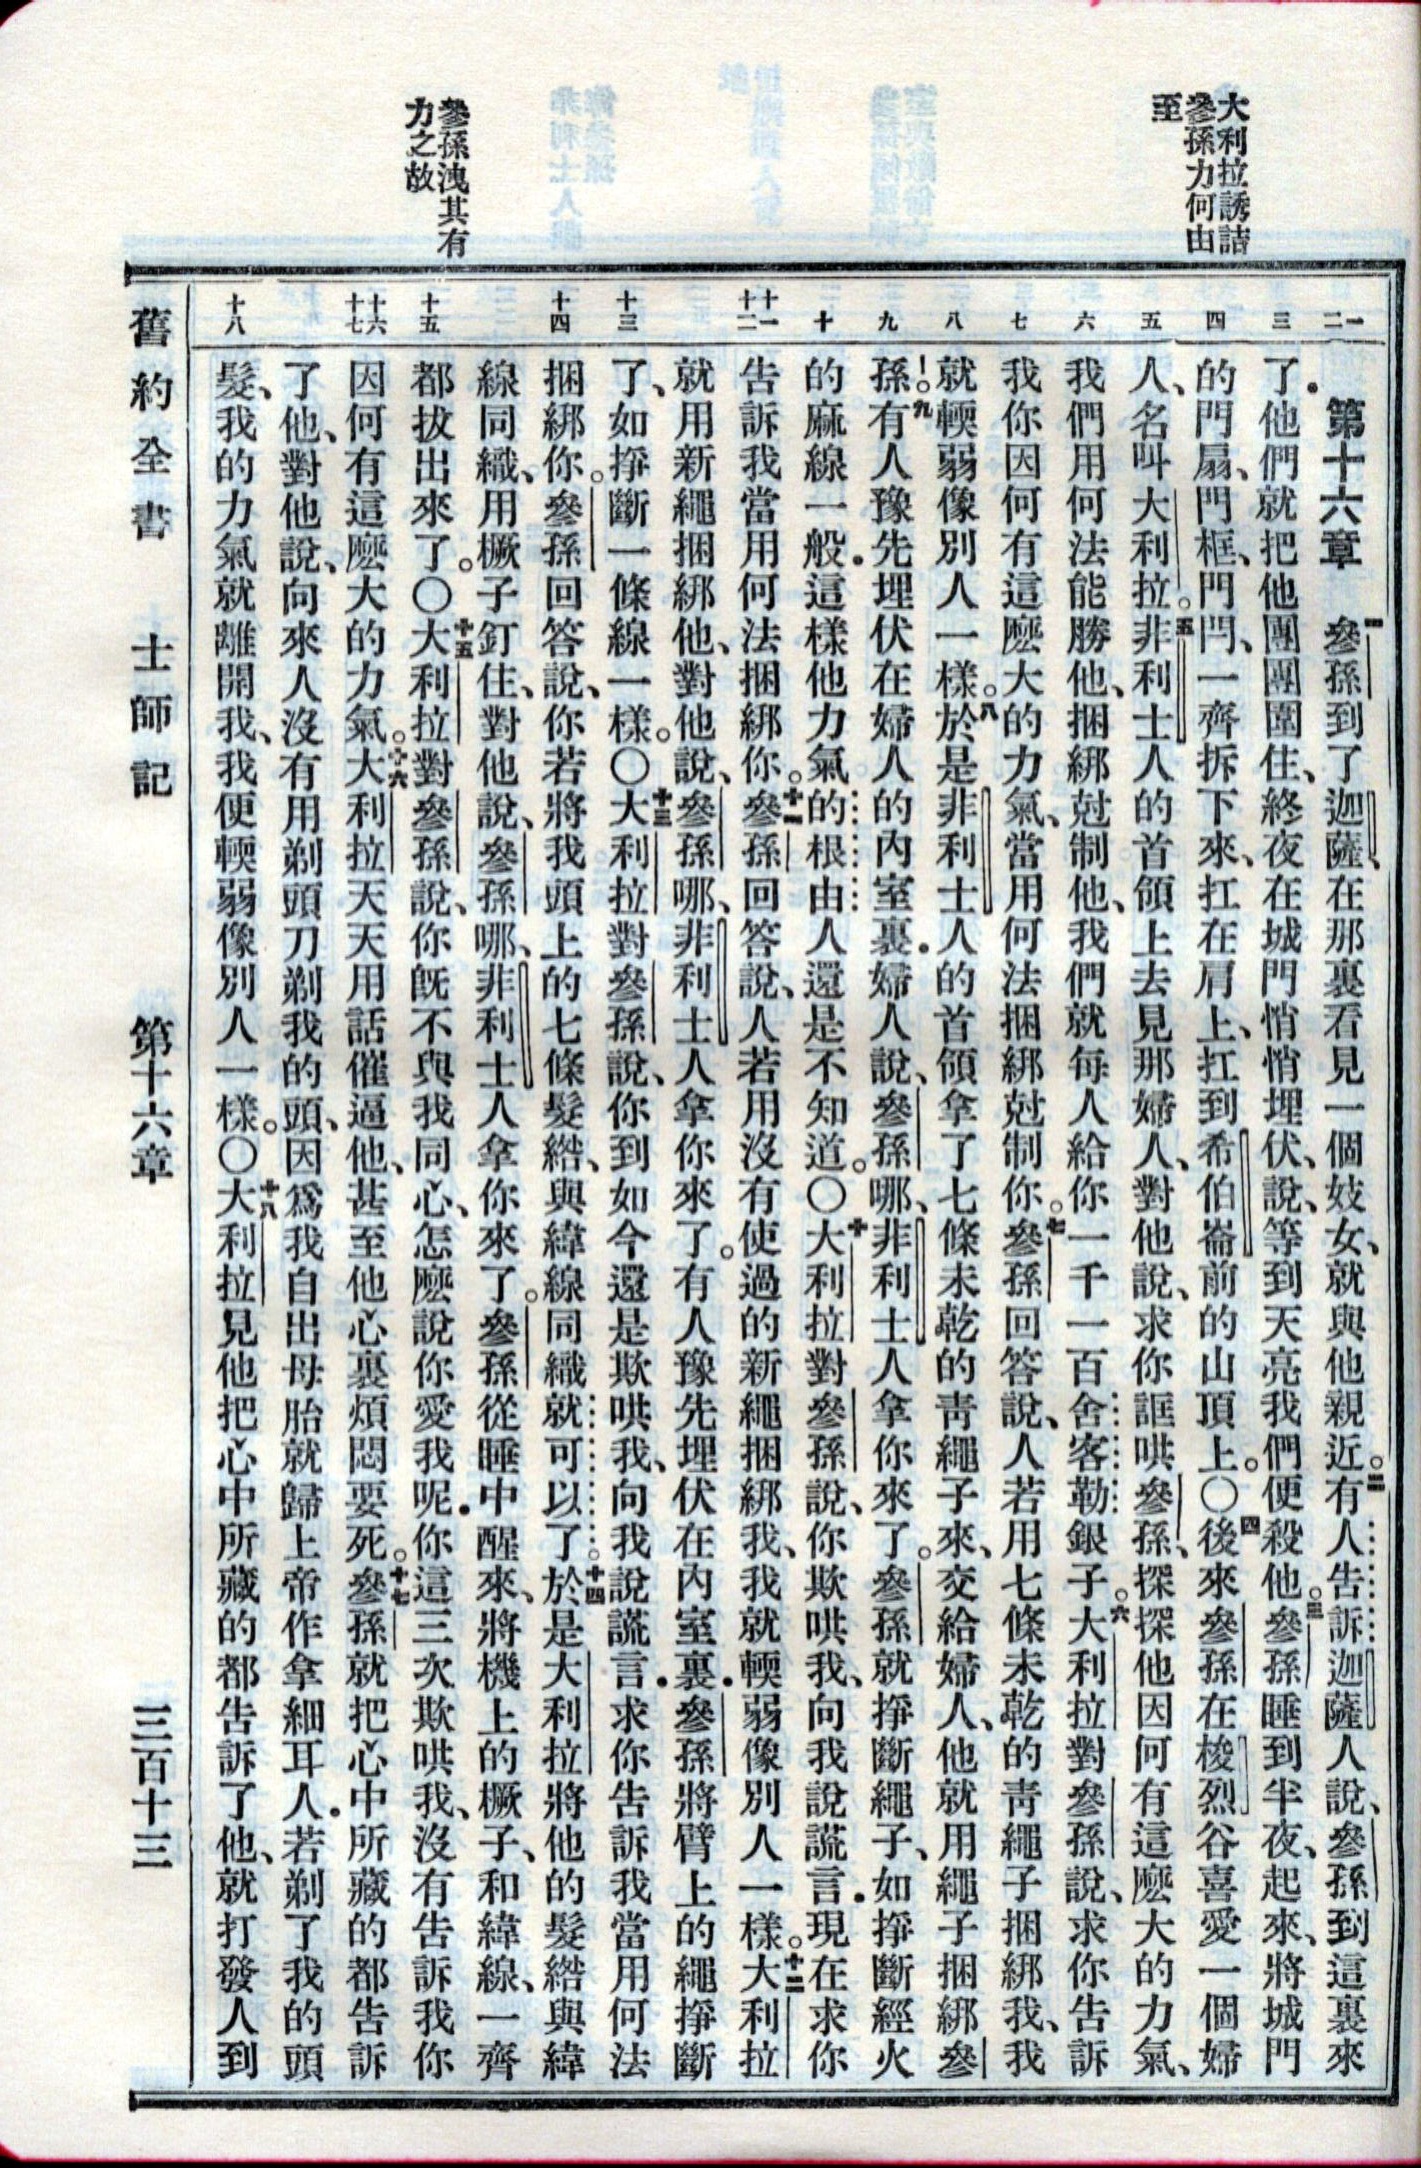 大利拉誘詰
參孫力何由
至
參孫洩其有
力之故
一
二
三
四
五
六
七
八
九
十
十一
十二
十三
十四
十五
十六
十七
十八
第十六章　一參孫到了迦薩、在那裏看見一個妓女、就與他親近。二有人告訴迦薩人說、參孫到這裏來
了．他們就把他團團圍住、終夜在城門悄悄埋伏、說、等到天亮我們便殺他。三參孫睡到半夜、起來、將城門
的門扇、門框、門閂、一齊拆下來、扛在肩上、扛到希伯崙前的山頂上。〇四後來參孫在梭烈谷喜愛一個婦
人、名叫大利拉。五非利士人的首領上去見那婦人、對他說、求你誆哄參孫、探探他因何有這麽大的力氣、
我們用何法能勝他、捆綁尅制他、我們就每人給你一千一百舍客勒銀子。六大利拉對參孫說、求你告訴
我你因何有這麽大的力氣、當用何法捆綁尅制你。七參孫回答說、人若用七條未乾的靑繩子捆綁我、我
就輭弱像別人一樣。八於是非利士人的首領拿了七條未乾的靑繩子來、交給婦人、他就用繩子捆綁參
孫。九有人豫先埋伏在婦人的內室裏．婦人說、參孫哪、非利士人拿你來了。參孫就掙斷繩子、如掙斷經火
的麻線一般．這樣他力氣的根由人還是不知道。〇十大利拉對參孫說、你欺哄我、向我說謊言．現在求你
告訴我當用何法捆綁你。十一參孫回答說、人若用沒有使過的新繩捆綁我、我就輭弱像別人一樣。十二大利拉
就用新繩捆綁他、對他說、參孫哪、非利士人拿你來了。有人豫先埋伏在內室裏．參孫將臂上的繩掙斷
了、如掙斷一條線一樣。〇十三大利拉對參孫說、你到如今還是欺哄我、向我說謊言．求你告訴我當用何法
捆綁你。參孫回答說、你若將我頭上的七條髮綹、與緯線同織就可以了。十四於是大利拉將他的髮綹與緯
線同織、用橛子釘住、對他說、參孫哪、非利士人拿你來了。參孫從睡中醒來、將機上的橛子、和緯線、一齊
都拔出來了。〇十五大利拉對參孫說、你旣不與我同心、怎麽說你愛我呢．你這三次欺哄我、沒有告訴我你
因何有這麽大的力氣。十六大利拉天天用話催逼他、甚至他心裏煩悶要死。十七參孫就把心中所藏的都告訴
了他、對他說、向來人沒有用剃頭刀剃我的頭、因爲我自出母胎就歸上帝作拿細耳人．人若剃了我的頭
髮、我的力氣就離開我、我便輭弱像別人一樣。〇十八大利拉見他把心中所藏的都告訴了他、就打發人到
舊約全書　士師記　第十六章　三百十三